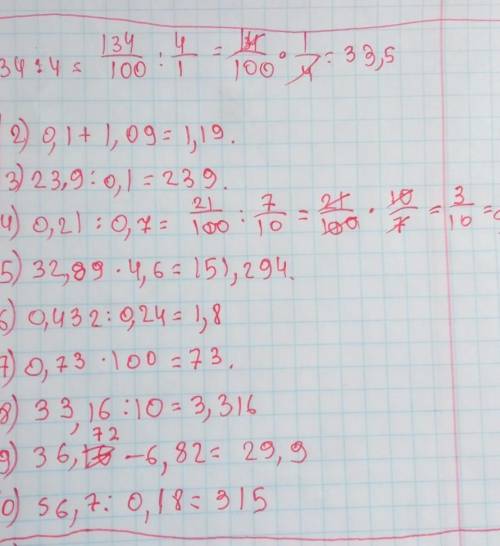 34:4 = 134/100 : 4/1 = 134/100 · 1/4 = 33,5
2) 0,1 + 1,09 = 1,19.
3) 23,9 : 0,1 = 239.
4) 0,21 : 0,7 = 21/100 : 7/10 = 21/100 · 10/7 = 3/10 =
5) 32,89 · 4,6 = 151,294.
6) 0,432 : 0,24 = 1,8
7) 0,73 · 100 = 73.
8) 33,16 : 10 = 3,316
9) 36,72 - 6,82 = 29,9
0) 56,7 : 0,18 = 315